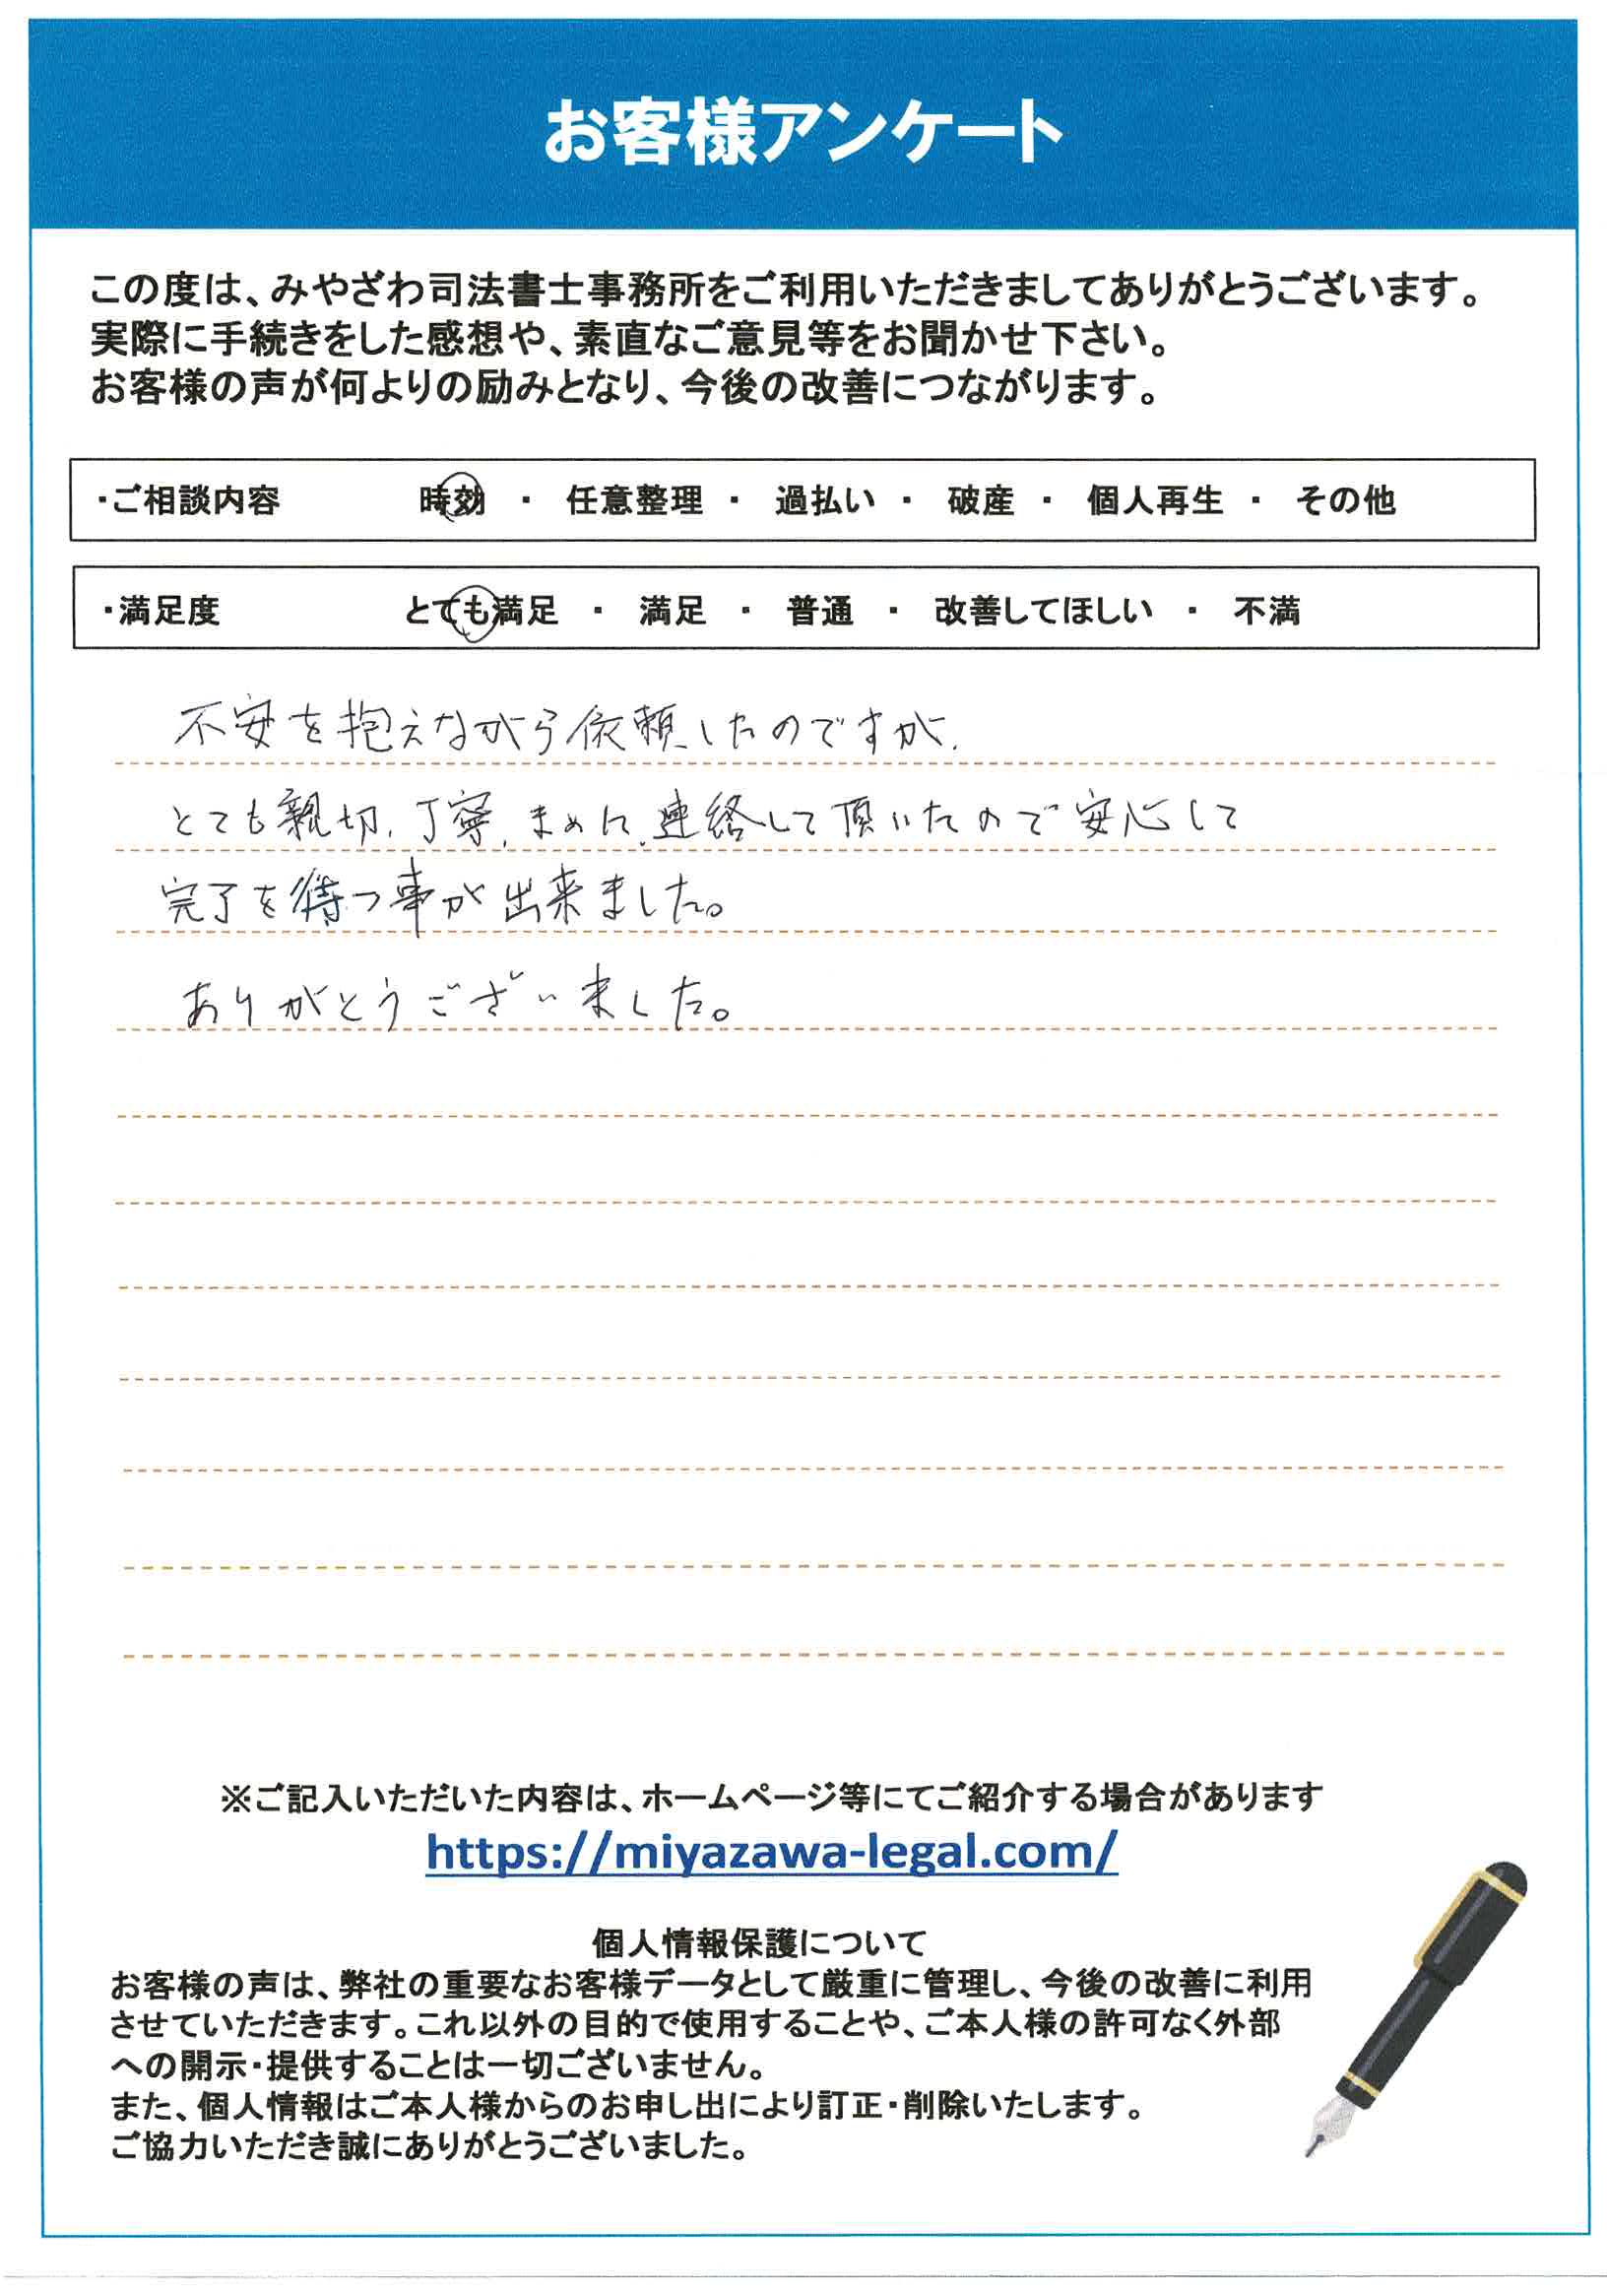 お客様アンケート
この度は、みやざわ司法書士事務所をご利用いただきましてありがとうございます。
実際に手続きをした感想や、素直なご意見等をお聞かせ下さい。
お客様の声が何よりの励みとなり、今後の改善につながります。
・ご相談内容 時効 ・ 任意整理 ・ 過払い ・ 破産 ・ 個人再生 ・ その他
・満足度 とても満足 ・ 満足 ・ 普通 ・ 改善してほしい ・ 不満
不安を抱えながら依頼したのですが、
とても親切、丁寧、まめに、連絡して頂いたので安心して
完了を待つ事が出来ました。
ありがとうございました。
※ご記入いただいた内容は、ホームページ等にてご紹介する場合があります
https://miyazawa-legal.com/
個人情報保護について
お客様の声は、弊社の重要なお客様データとして厳重に管理し、今後の改善に利用
させていただきます。これ以外の目的で使用することや、ご本人様の許可なく外部
への開示・提供することは一切ございません。
また、個人情報はご本人様からのお申し出により訂正・削除いたします。
ご協力いただき誠にありがとうございました。